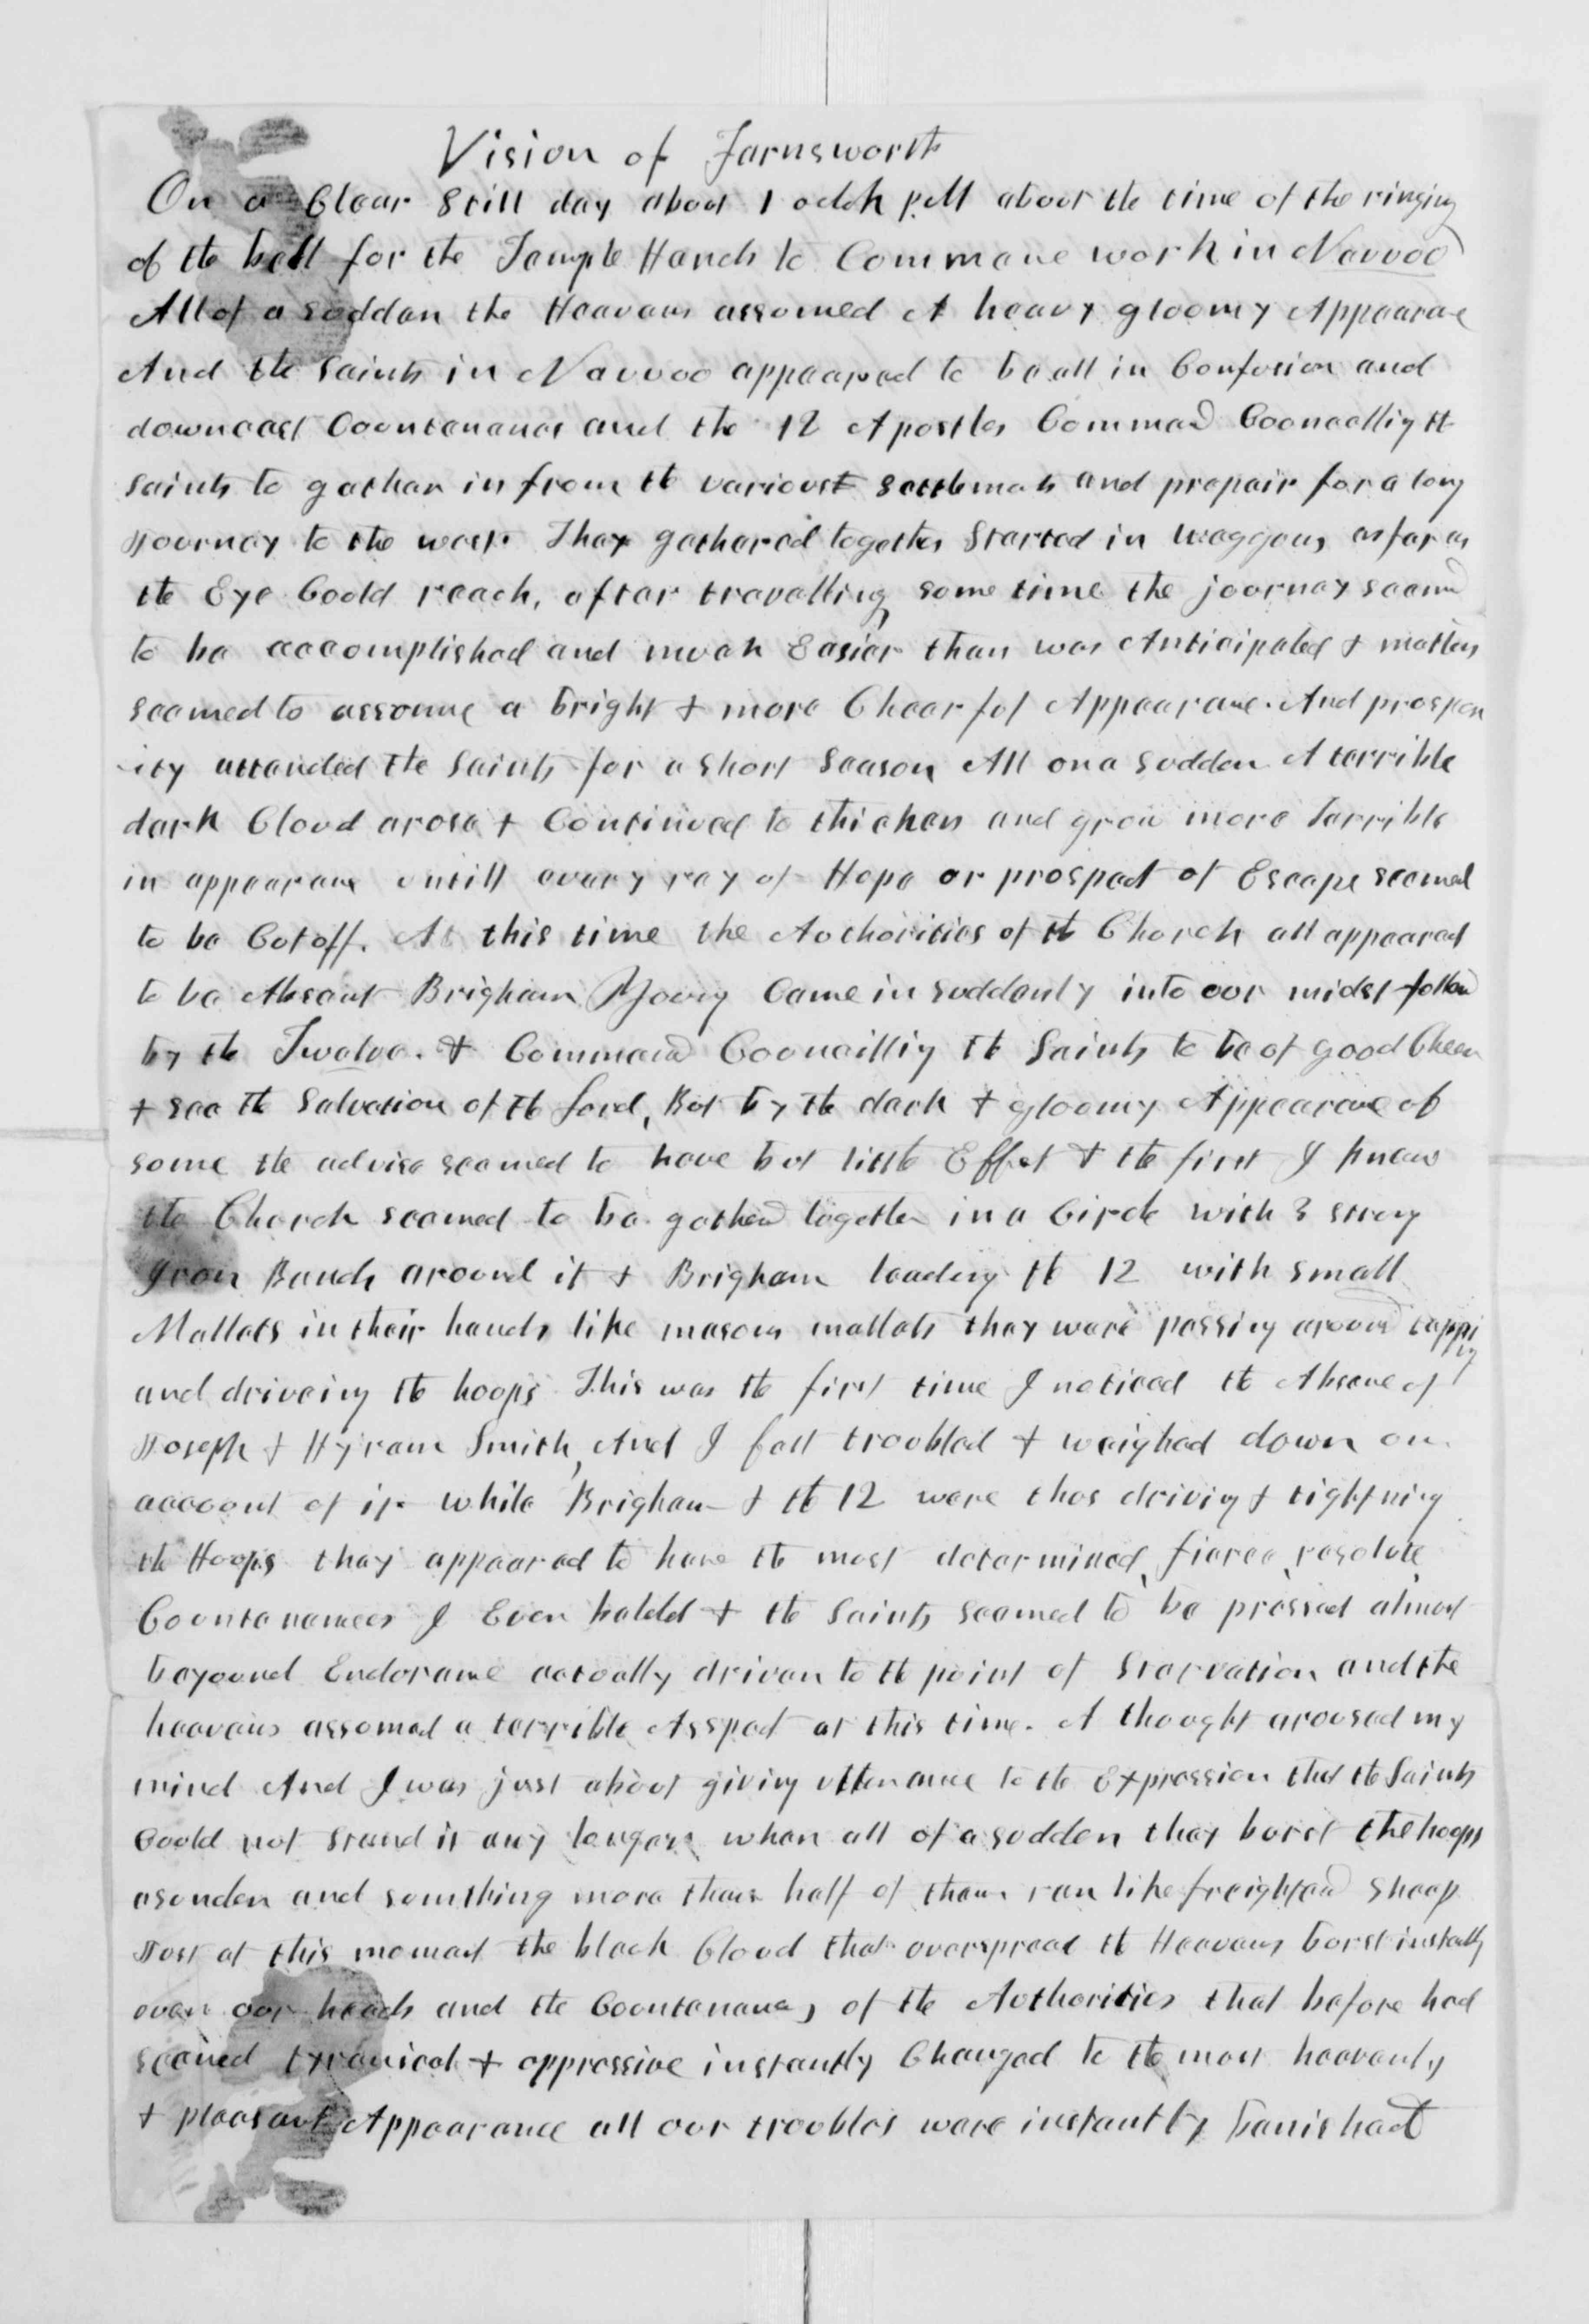 Vision of Farnsworth
On a Clear Still day about 1 oclck P.M about the time of the ringing
of the bell for the Temple Hands to Commence work in Nauvoo
All of a suddan the Heavens assumed A heavy gloomy Appearance
And the Saints in Nauvoo appeared to be all in Confusion and
downcast Countenances and the 12 Apostles Commencd Councelling the
saints to gather in from the various settlements and prepair for a long
Journey to the west. They gathered together Started in waggons as far as
the Eye Could reach, after travelling some time the journey seemd
to be accomplished and much Easier than was Anticipated & matters
seemed to assume a bright & more Chearful Appearance. And prosper
-ity attended the Saints for a short Season All on a sudden A terrible
dark Cloud arose & Continued to thicken and grow more Terrible
in appearance untill every ray of Hope or prospect of Escape seemed
to be Cut off. At this time the Authorities of the Church all appeared
to be Absent Brigham Young Came in suddenly into our midst followd
by the Twelve. & Commencd Councilling the Saints to be of good Cheer
& see the Salvation of the Lord, But by the dark & gloomy Appearance of
some the advise seemed to have but little Effect & the first I knew
the Church seemed to be gatherd together in a Circle with 3 strong
Iron Bands around it & Brigham leading the 12 with small
Mallets in their hands like masons mallets they were passing around tapping
and driveing the hoops This was the first time I noticed the Absence of
Joseph & Hyram Smith, And I felt troubled & weighed down on
account of it. while Brigham & the 12 were thus driving & tightning
the Hoops they appeared to have the most determined, fierce, resolute,
Countenances I Ever beheld & the Saints seemed to be pressed almost
beyound Endurance actually driven to the point of Starvation and the
heavens assumed a terrible Asspect at this time. A thought aroused my
mind And I was just about giving utterance to the Expression that the Saints
Could not stand it any longer when all of a sudden they burst the hoops
asunder and somthing more than half of them ran like freightend sheep
Just at this moment the black Cloud that overspread the Heavens burst instantly
over our heads and the Countenances of the Authorities that before had
seemed tyranical & oppressive instantly Changed to the most heavenly
& pleasant Appearance all our troubles were instantly banished